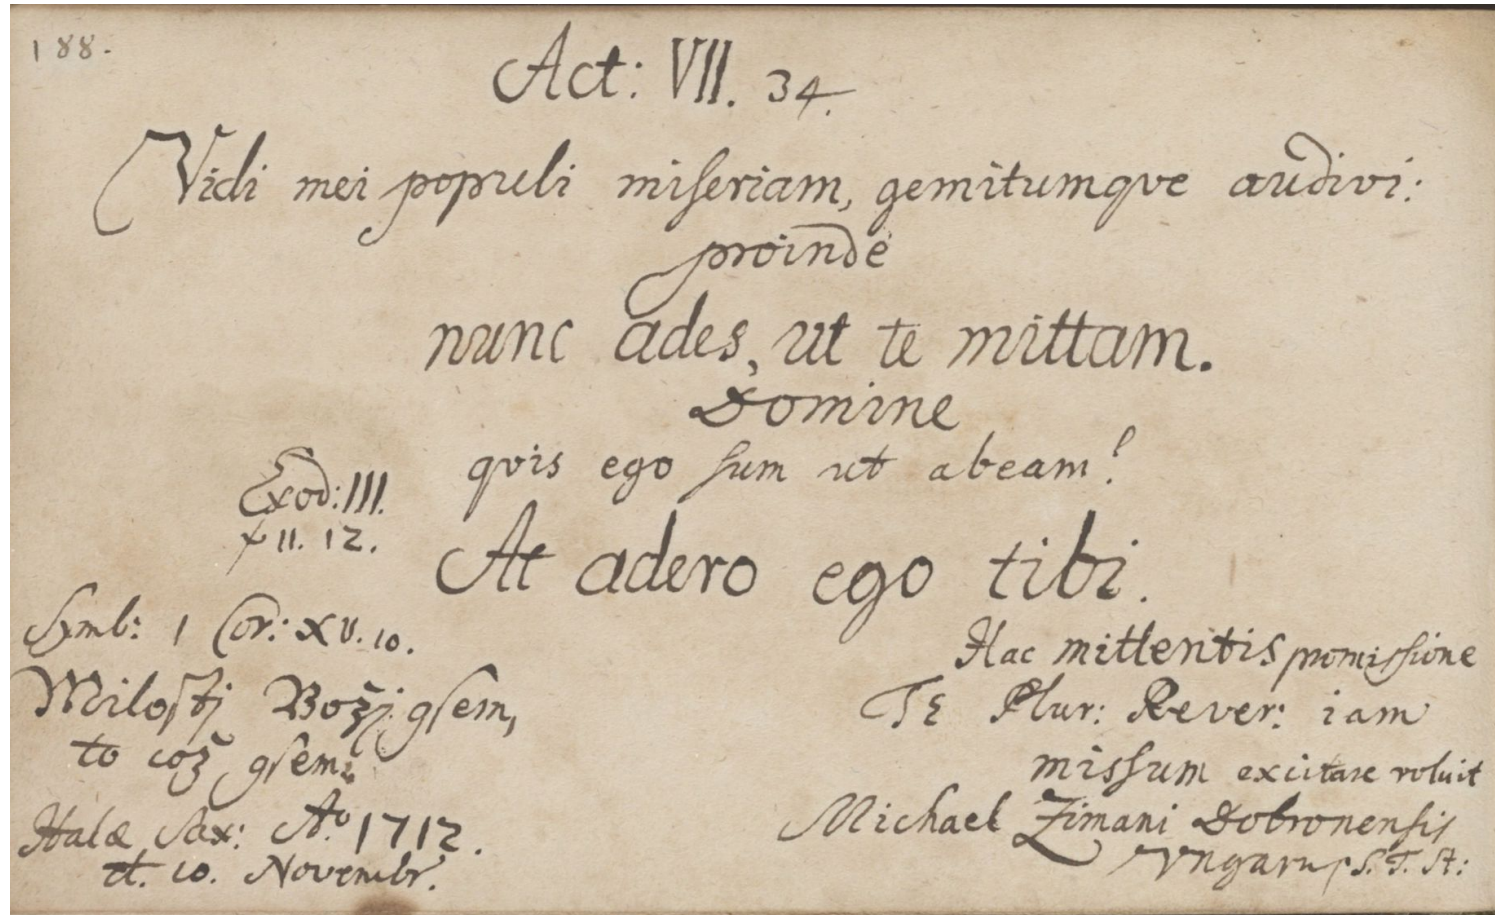 188.
Act: VII. 34.
Vidi mei populi miseriam, gemitumqve audivi:
proinde
nunc ades, ut te mittam.
Domine
qvis ego sum ut abeam?
Exod: III.
℣ 11. 12.
At adero ego tibi.
Symb: 1 Cor: XV. 10.
Milostj Božj gsem,
to což gsem.
Halæ Sax: Aº 1712.
d. 10. Novembr.
Hac mittentis promissione
Te Plur: Rever: iam
missum excitare voluit
Michael Zimani Dobronensis
Vngarus S. T. St: